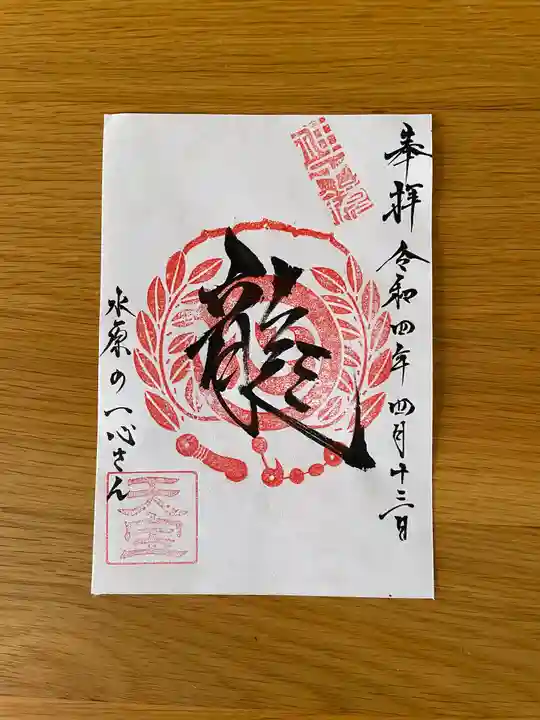 奉拝 令和四年四月十三日
龍
水原の一心さん